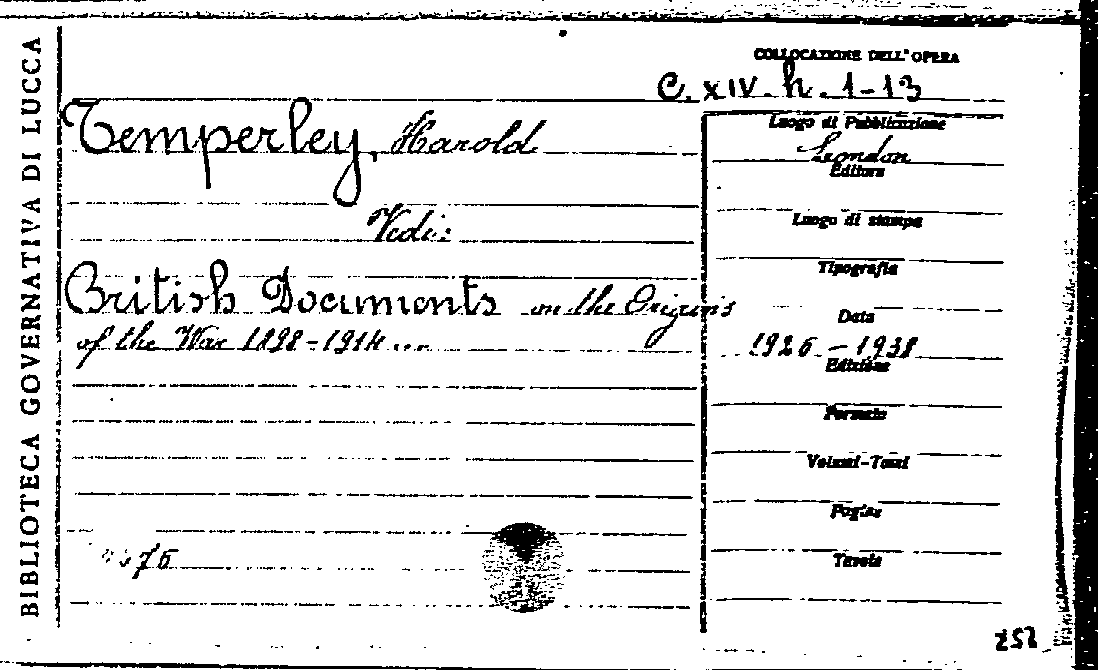 BIBLIOTECA GOVERNATIVA DI LUCCA
COLLOCAZIONE DELL'OPERA
C. XIV. h. 1-13
Temperley, Harold
Vedi:
British Documents on the Origins
of the War 1898-1914...
Luogo di Pubblicazione
London
Editore
Luogo di stampa
Tipografia
Data
1926-1938
Edizione
Formato
Volumi-Tomi
Pagine
Tavole